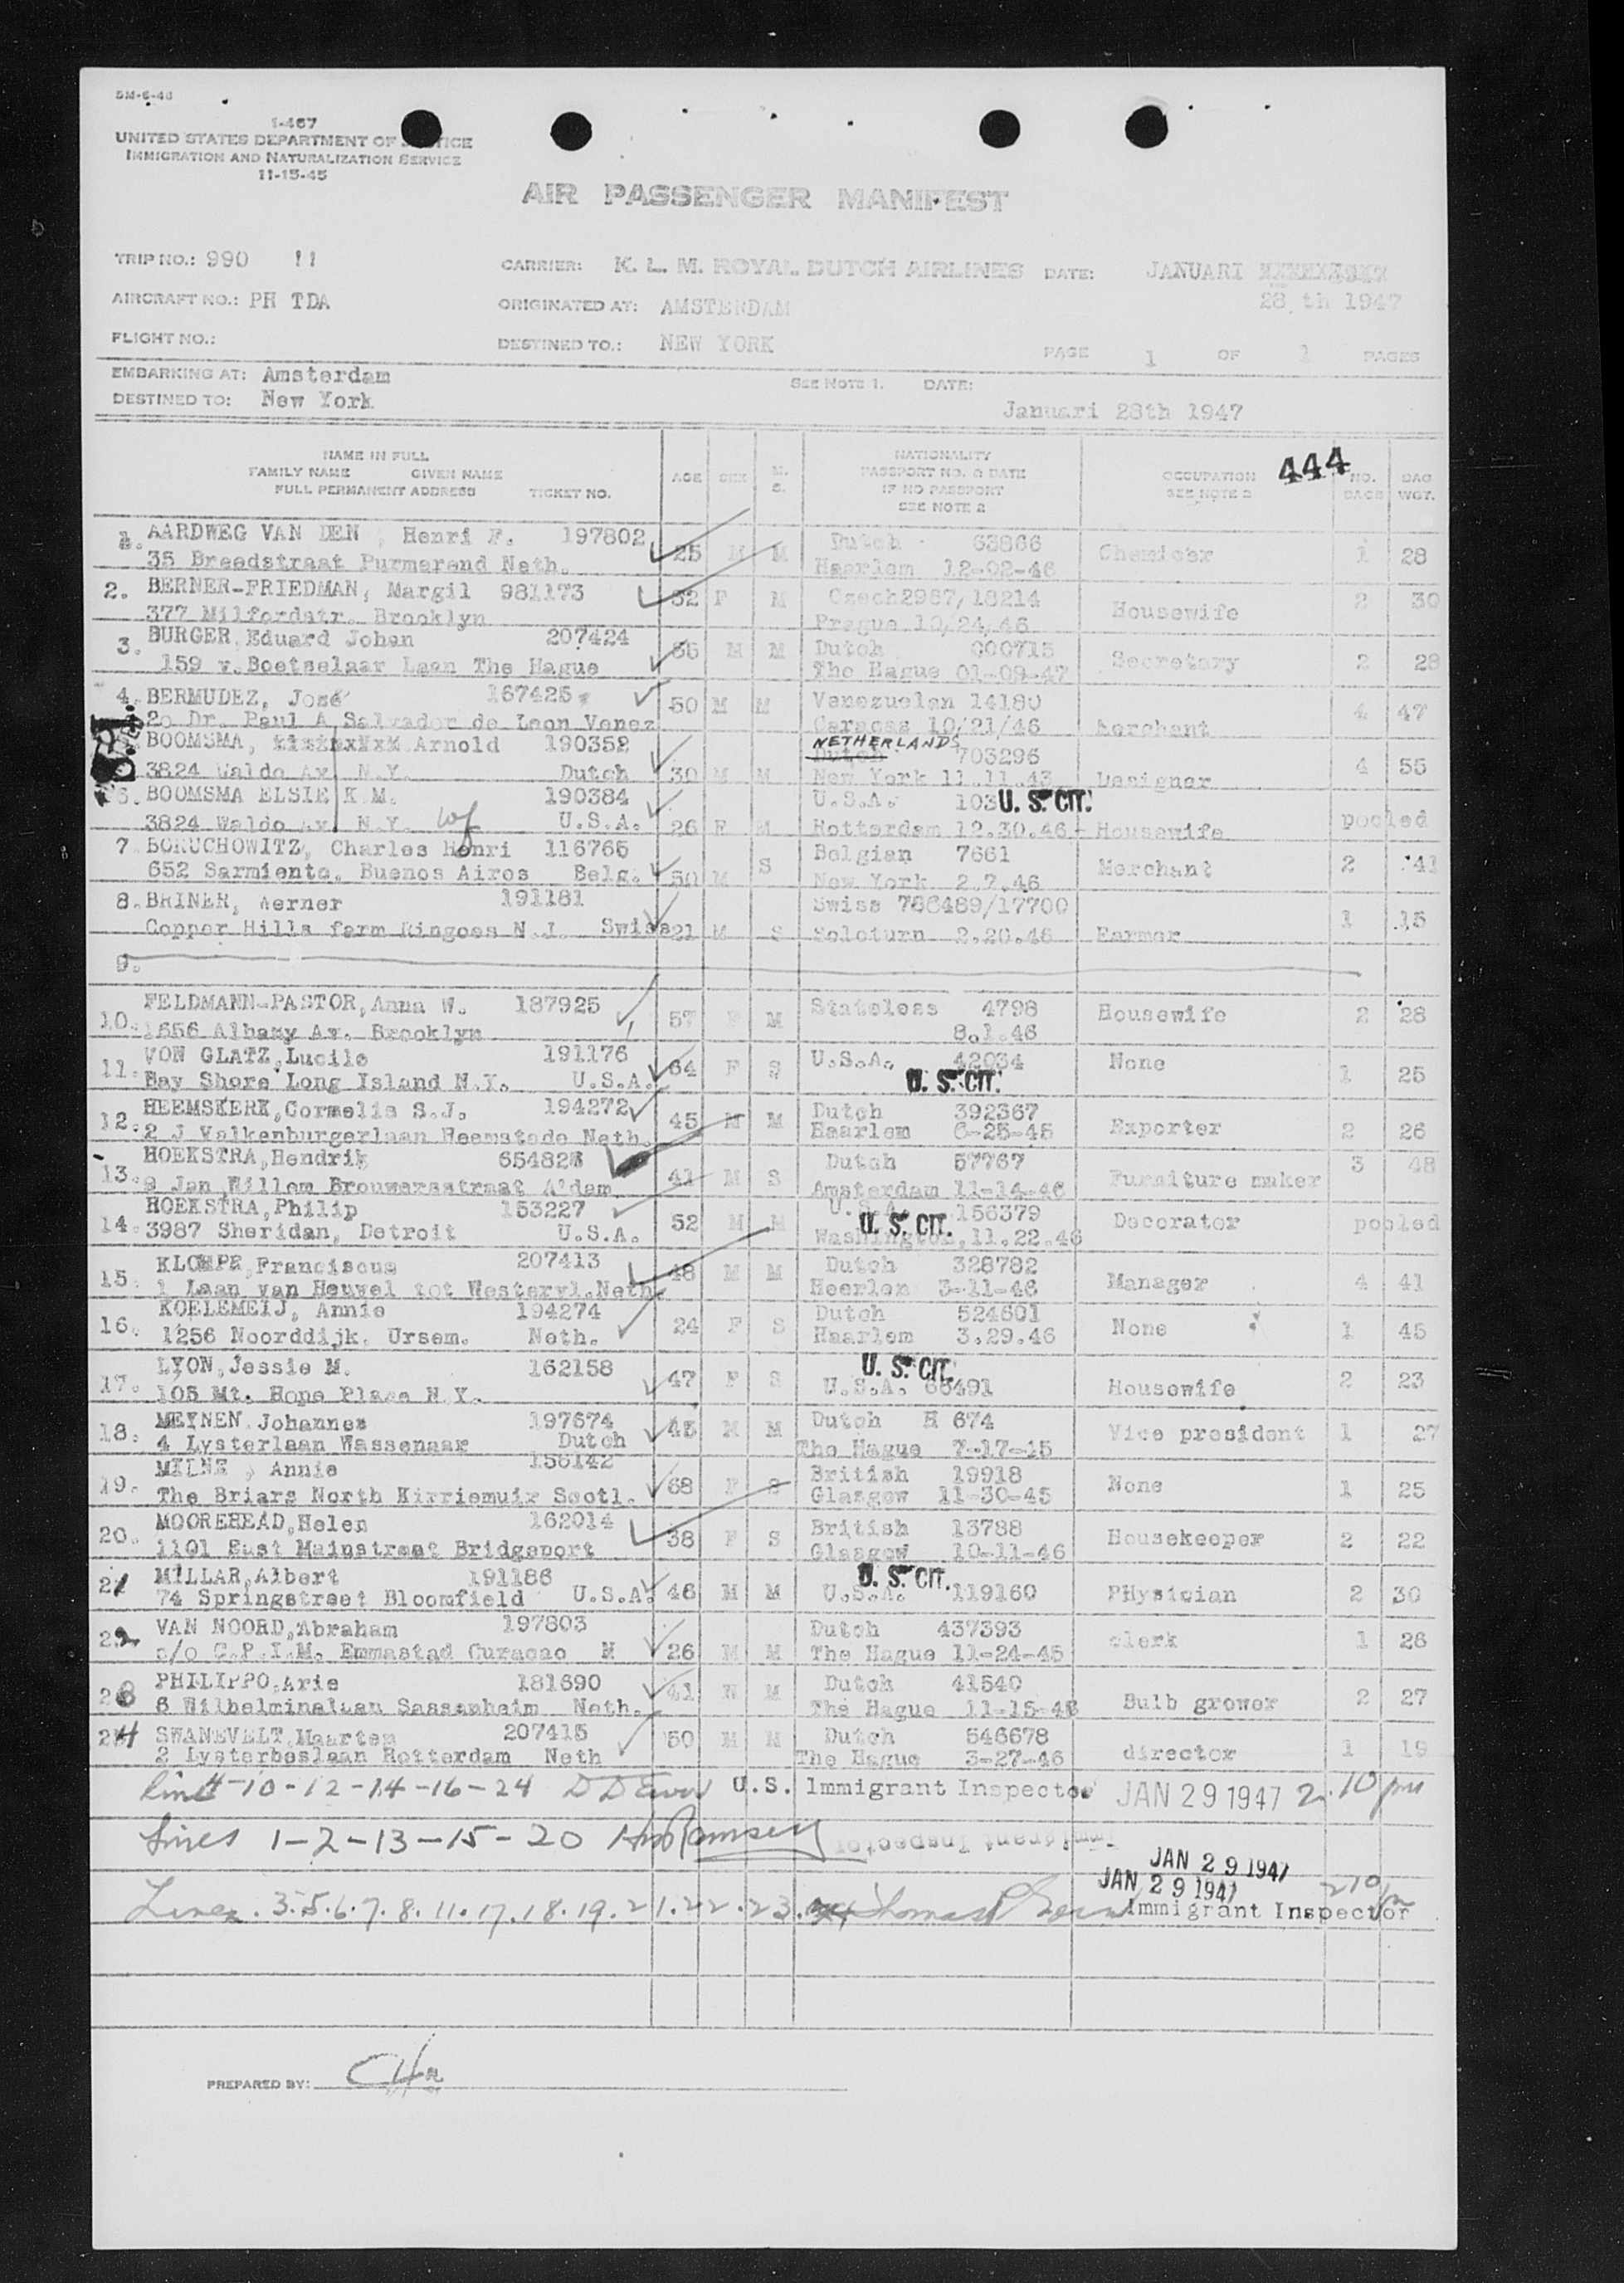 5M-6-46
I-467
UNITED STATES DEPARTMENT OF JUSTICE
IMMIGRATION AND NATURALIZATION SERVICE
11-15-45
AIR PASSENGER MANIFEST
TRIP NO.: 990 11 CARRIER: K. L. M. ROYAL DUTCH AIRLINES DATE: JANUARI
AIRCRAFT NO.: PH TDA ORIGINATED AT: AMSTERDAM 28 th 1947
FLIGHT NO.: DESTINED TO.: NEW YORK PAGE 1 OF 1 PAGES
EMBARKING AT: Amsterdam SEE NOTE 1. DATE:
DESTINED TO: New York Januari 28th 1947
NAME IN FULL NATIONALITY 444
FAMILY NAME GIVEN NAME AGE SEX M. S. PASSPORT NO. & DATE OCCUPATION NO. BAGS BAG WGT.
FULL PERMANENT ADDRESS TICKET NO. IF NO PASSPORT SEE NOTE 2
SEE NOTE 2
1. AARDWEG VAN DEN , Henri F. 197802 25 M M Dutch 63866 1 28
35 Breedstraat Purmerend Neth. Haarlem 12-02-46
2. BERNER-FRIEDMAN, Margil 981173 32 F M Czech2987/18214 Housewife 2 30
377 Milfordstr. Brooklyn Prague 10/24/46
3. BURGER, Eduard Johan 207424 M M Dutch 000715 Secretary 2 28
159 v.Boetselaar Laan The Hague The Hague 01-09-47
4. BERMUDEZ, José 167425 50 M M Venezuelan 14180 Merchant 4 47
20 Dr. Paul A Salvador de Leon Venez Caracas 10/21/46
BOOMSMA, Arnold 190352 NETHERLANDS
Dutch 703296
3824 Waldo Av N.Y. Dutch 30 M M New York 11.11.43 Designer 4 55
6. BOOMSMA ELSIE K.M. 190384 U.S.A. 103 U. S. CIT.
3824 Waldo Av N.Y. wf U.S.A. 26 F M Rotterdam 12.30.46 Housewife pooled
7. BORUCHOWITZ, Charles Henri 116765 Belgian 7661 Merchant 2 41
652 Sarmiento, Buenos Aires Belg. 50 M S New York 2.7.46
8. BRINER, Werner 191181 Swiss 786489/17700 1 15
Copper Hills farm Ringoes N.J. Swiss 21 M S Soloturn 2.20.46 Farmer
9.
10. FELDMANN-PASTOR, Anna W. 187925 57 F M Stateless 4798 Housewife 2 28
1656 Albany Av. Brooklyn 8.1.46
11. VON GLATZ, Lucile 191176 64 F S U.S.A. 42034 None 1 25
Bay Shore Long Island N.Y. U.S.A. U. S. CIT.
12. HEEMSKERK, Cornelis S.J. 194272 45 M M Dutch 392367 Exporter 2 26
2 J Valkenburgerlaan Heemstede Neth. Haarlem 6-25-45
13. HOEKSTRA, Hendrik 41 M S Dutch 57767 Furniture maker 3 48
9 Jan Willem Brouwersstraat A'dam Amsterdam 11-14-46
14. HOEKSTRA, Philip 153227 52 M M U.S.A. 156379 Decorator pooled
3987 Sheridan, Detroit U.S.A. U. S. CIT. Washington, 11.22.46
15. KLOMPE, Franciscus 207413 48 M M Dutch 328782 Manager 4 41
1 Laan van Heuvel tot Westervl.Neth. Heerlen 3-11-46
16. KOELEMEIJ, Annie 194274 24 F S Dutch 524601 None 1 45
1256 Noorddijk, Ursem. Neth. Haarlem 3.29.46
17. LYON, Jessie M. 162158 47 F S U. S. CIT. Housewife 2 23
105 Mt. Hope Place N.Y. U.S.A. 66491
18. MEYNEN, Johannes 197674 45 M M Dutch H 674 Vice president 1 27
4 Lysterlaan Wassenaar Dutch The Hague 7-17-15
19. MILNE , Annie 156142 68 F S British 19918 None 1 25
The Briars North Kirriemuir Scotl. Glasgow 11-30-45
20. MOOREHEAD, Helen 162014 38 F S British 13788 Housekeeper 2 22
1101 East Mainstreet Bridgeport Glasgow 10-11-46
21 MILLAR, Albert 191186 46 M M U. S. CIT. PHysician 2 30
74 Springstreet Bloomfield U.S.A. U.S.A. 119160
22 VAN NOORD, Abraham 197803 26 M M Dutch 437393 clerk 1 26
c/o C.P.I.M. Emmastad Curacao N The Hague 11-24-45
23 PHILIPPO, Arie 181690 41 M M Dutch 41540 Bulb grower 2 27
6 Wilhelminalaan Sassenheim Neth. The Hague 11-15-46
24 SWANEVELT, Maarten 207415 50 M M Dutch 546678 director 1 19
2 Lysterbeslaan Rotterdam Neth The Hague 3-27-46
line 4-10-12-14-16-24 U.S. Immigrant Inspector JAN 29 1947 2.10 pm
Lines 1-2-13-15-20 Ramsey Immigrant Inspector
JAN 29 1947
JAN 29 1947 210 pm
Lines. 3.5.6.7.8.11.17.18.19.21.22.23. Thomas Immigrant Inspector
PREPARED BY: